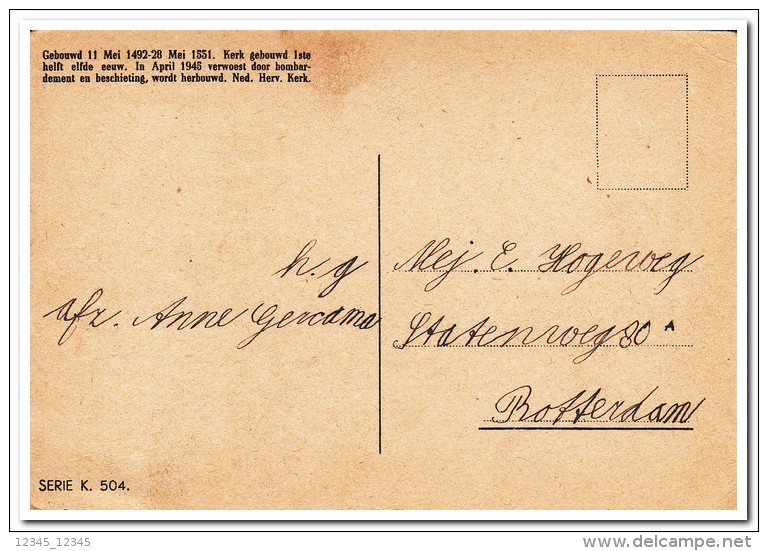 Gebouwd 11 Mei 1492-28 Mei 1531. Kerk gebouwd 1ste
helft elfde eeuw. In April 1945 verwoest door bombar-
dement en beschieting, wordt herbouwd. Ned. Herv. Kerk.
h. g
afz. Anne Gercama
Mej. E. Hogerweg
Statenweg 80 A
Rotterdam
SERIE K. 504.
12345_12345
delcampe.net